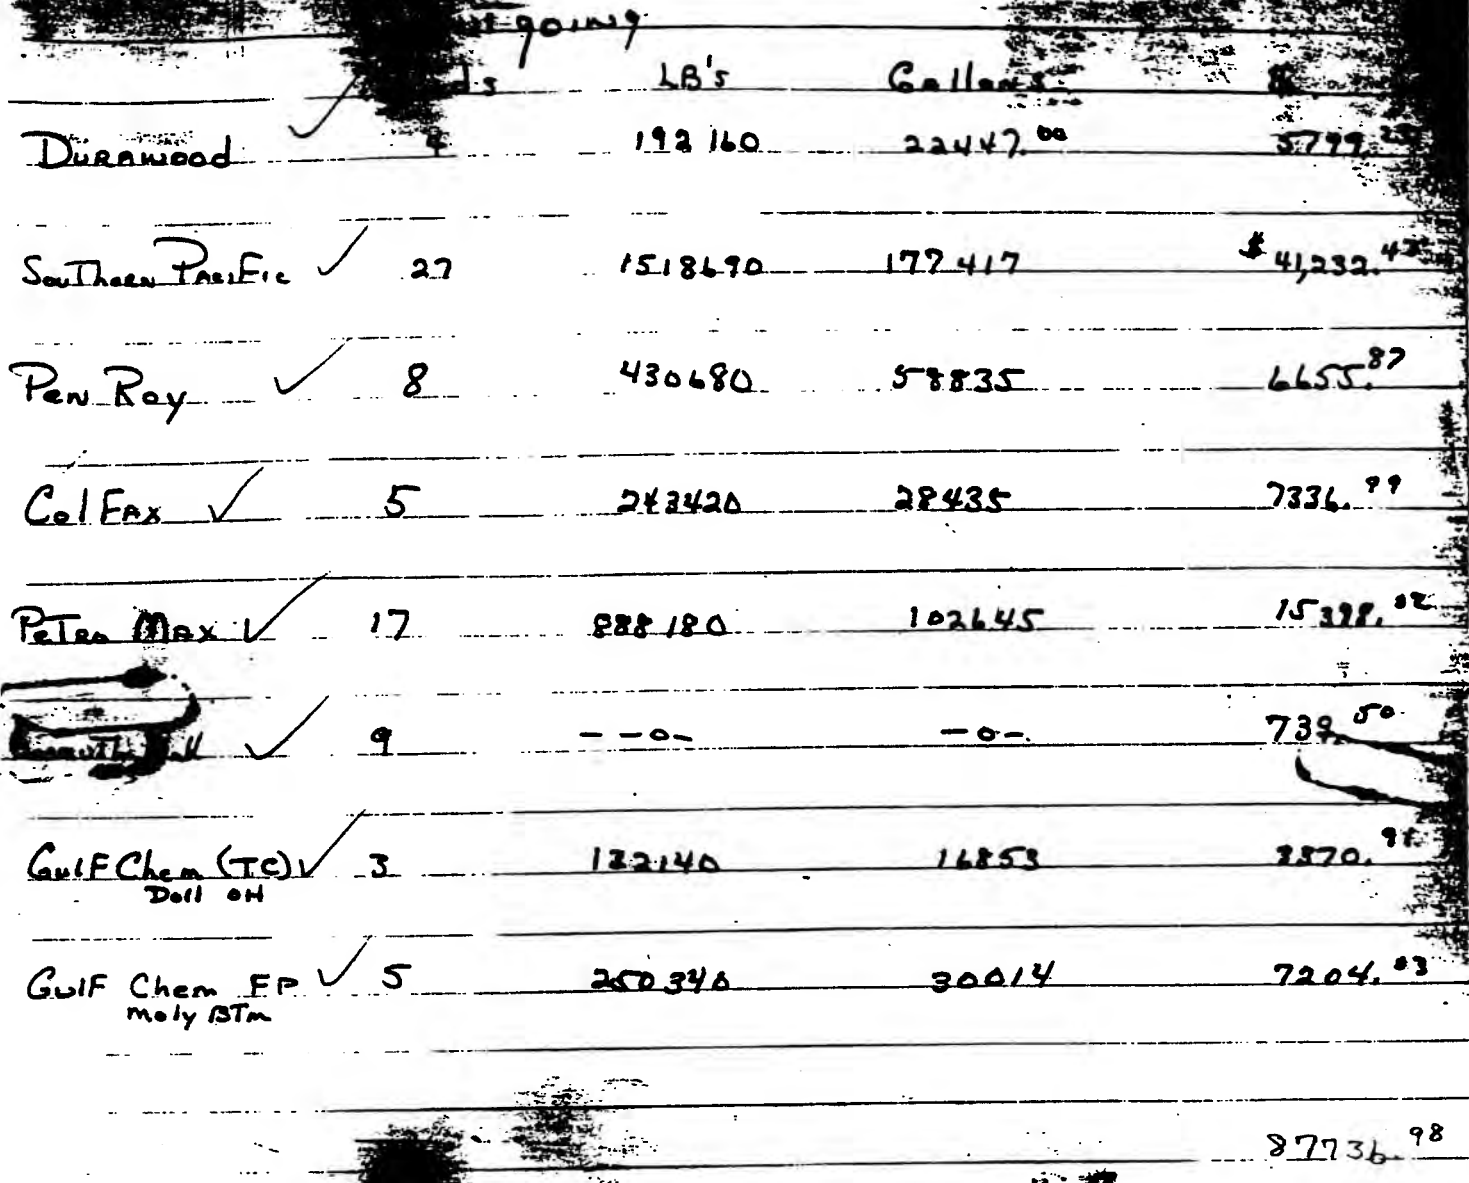 going
LB's Gallons $
Durawood 4 192160 22447.00 5799.
Southern Pacific 27 1518690 177417 $ 41,232.43
Pen Roy 8 430680 58835 6655.87
Colfax 5 243420 28435 7336.99
Petro Max 17 888180 102645 15398.
9 - -0- -0- 739.50
Gulf Chem (TC) 3 132140 16853
OH
Gulf Chem EP 5 250340 30014 7204.83
moly BTm
87736.98